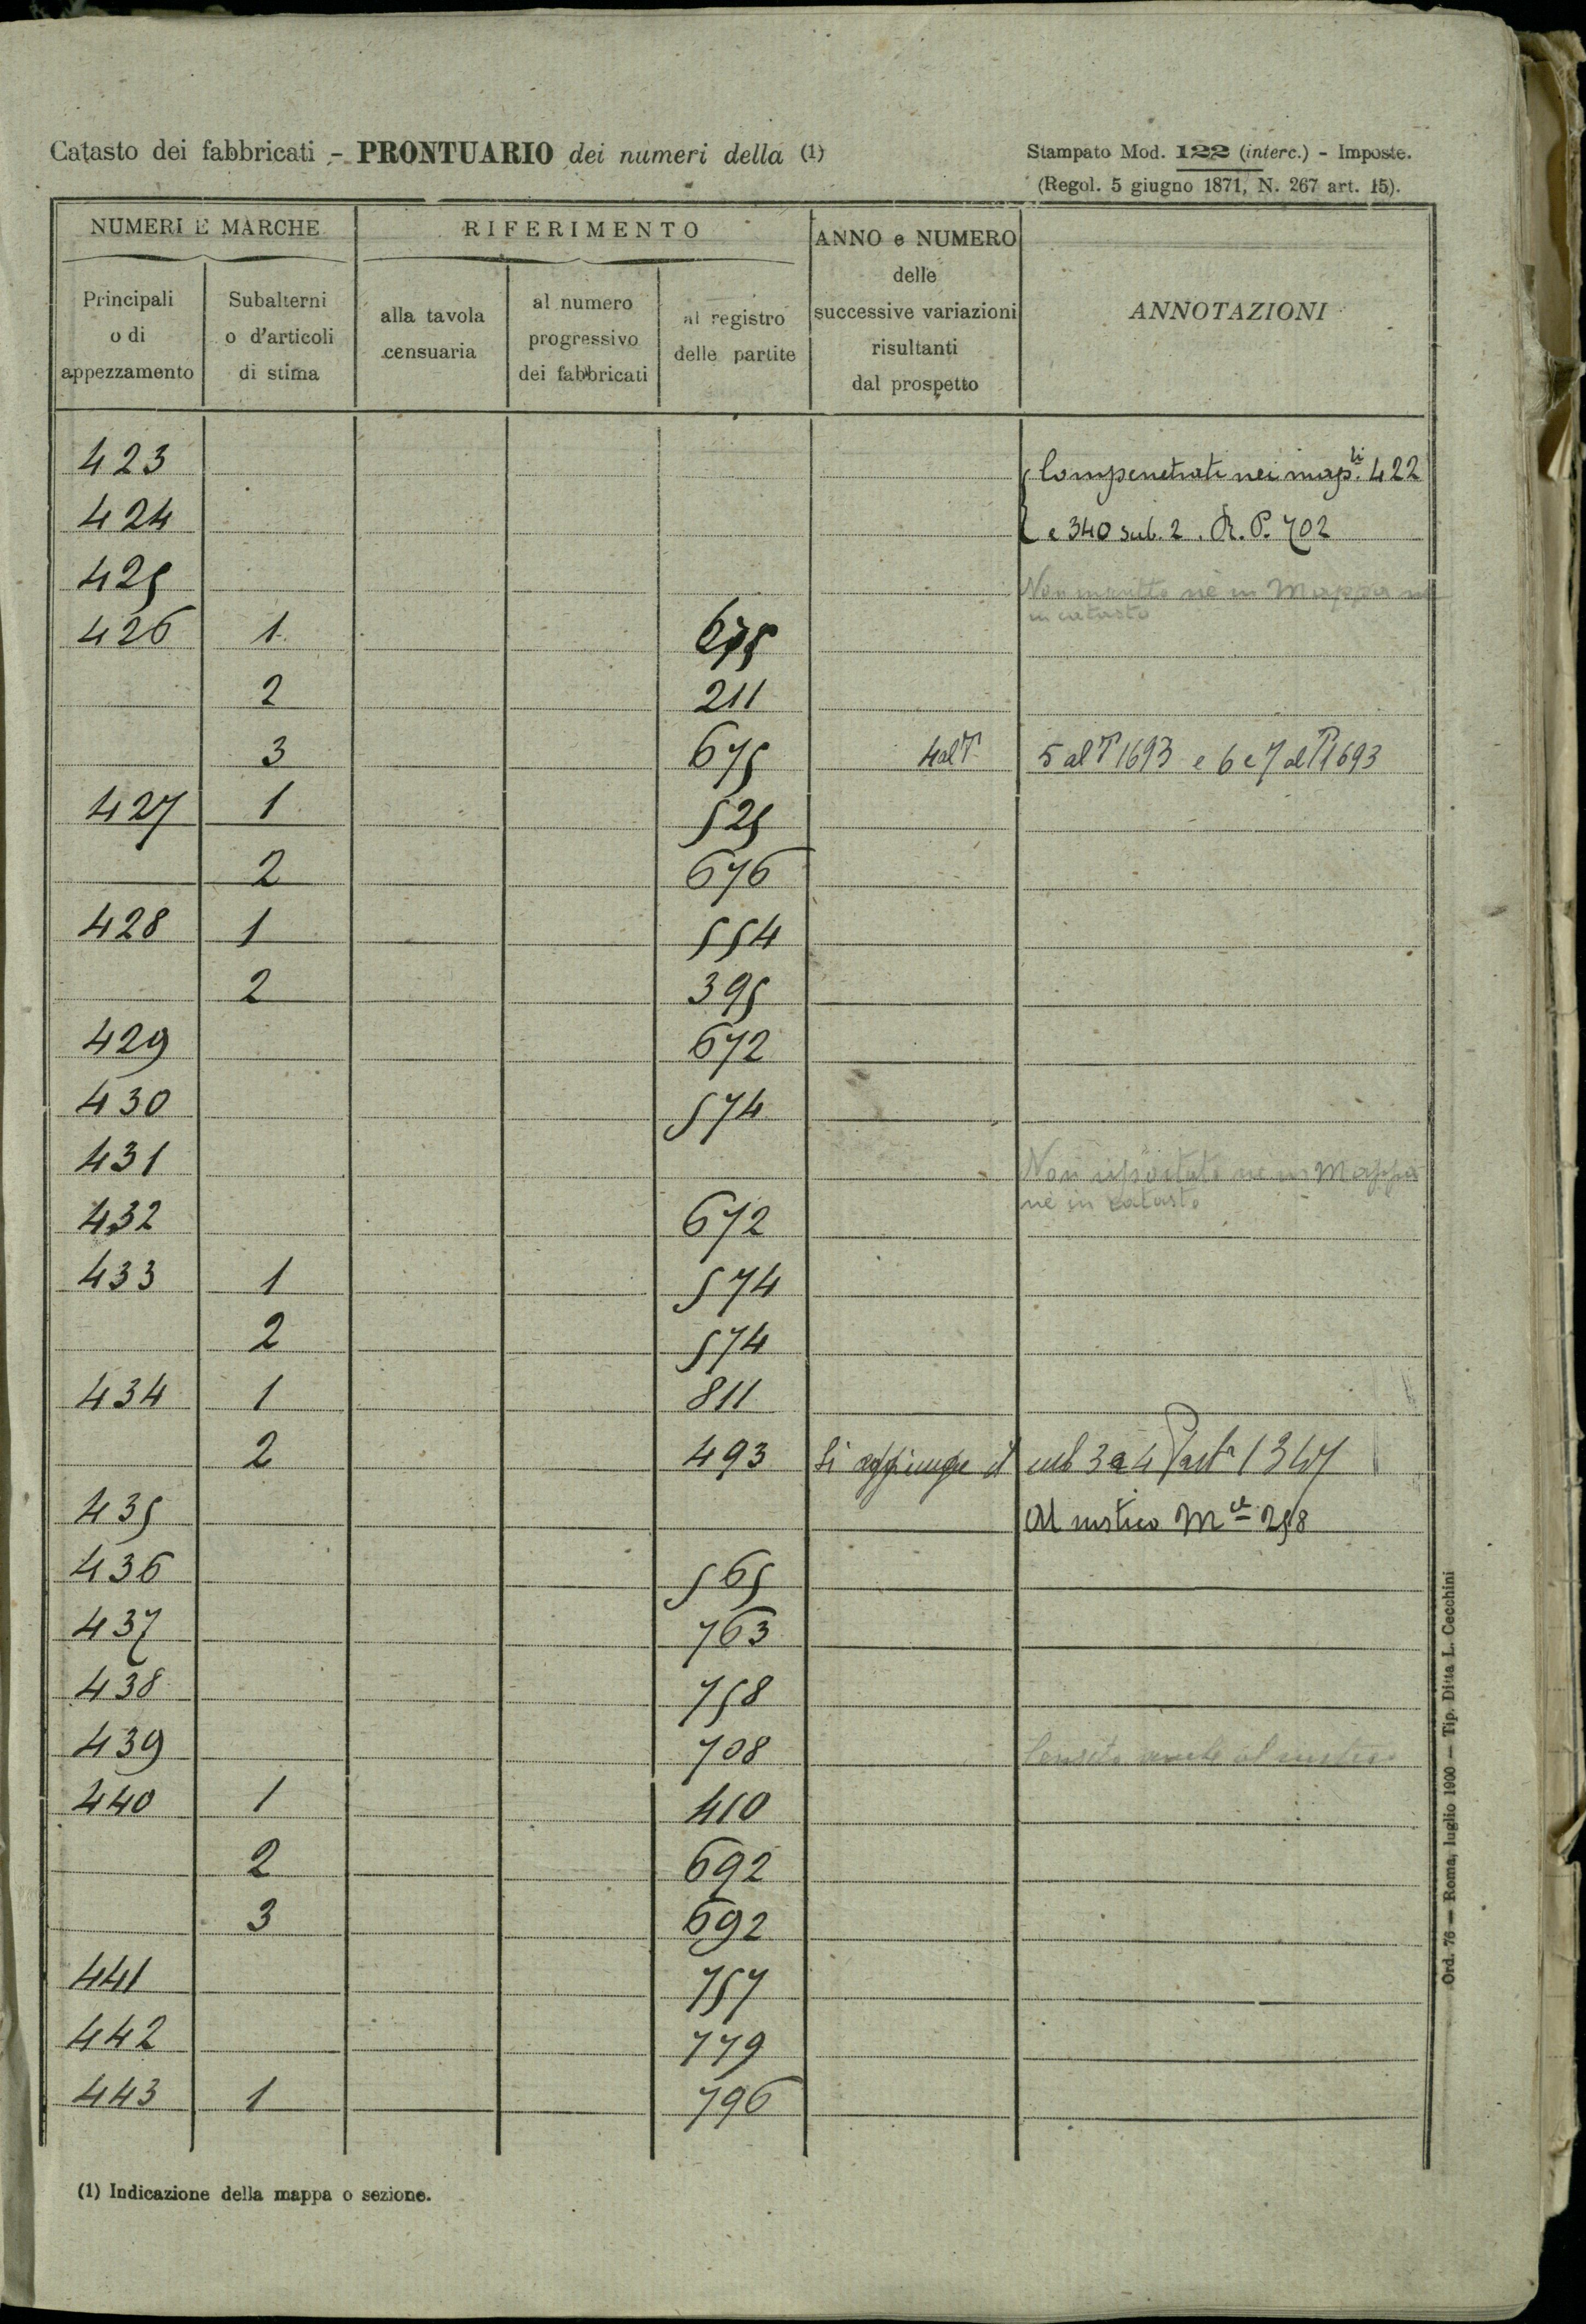 Catasto dei fabbricati - PRONTUARIO dei numeri della (1)
Stampato Mod. 122 (interc.) - Imposte.
(Regol. 5 giugno 1871, N. 267 art. 15).
NUMERI E MARCHE
RIFERIMENTO
ANNO e NUMERO delle successive variazioni risultanti dal prospetto
ANNOTAZIONI
Principali o di appezzamento
Subalterni o d'articoli di stima
alla tavola censuaria
al numero progressivo dei fabbricati
al registro delle partite
423 Compenetrati nei map.li 422
424 e 340 sub. 2. R. P. 702
425 Non inscritto nè in Mappa nè
in catasto
426 1 675
2 211
3 675 4 al P 5 al P 1693 e 6 e 7 al P 1693
427 1 525
2 676
428 1 554
2 395
429 672
430 574
431 Non riportato ne in Mappa
nè in catasto
432 672
433 1 574
2 574
434 1 811
2 493 Si aggiunge il sub 3 a 4 Part.
435 Al rustico 258
436 565
437 763
438 758
439 708 Censito anche al rustico
440 1 410
2 692
3 692
441 757
442 779
443 1 796
(1) Indicazione della mappa o sezione.
Ord. 76 — Roma, luglio 1900 — Tip. Ditta L. Cecchini